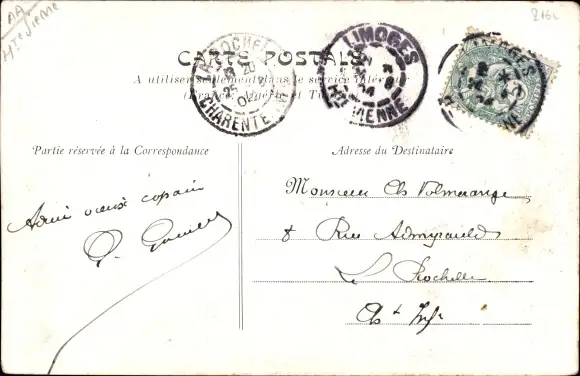 AA
Hte Vienne
CARTE POSTALE
A utiliser seulement dans le service intérieur
(France, Algérie et Tunisie)
LIMOGES
HTE VIENNE
LA ROCHELLE
CHARENTE
Partie réservée à la Correspondance
Adresse du Destinataire
Ami vieux copain
Monsieur Ch
8 Rue Admyrauld
La Rochelle
Ch te Infre